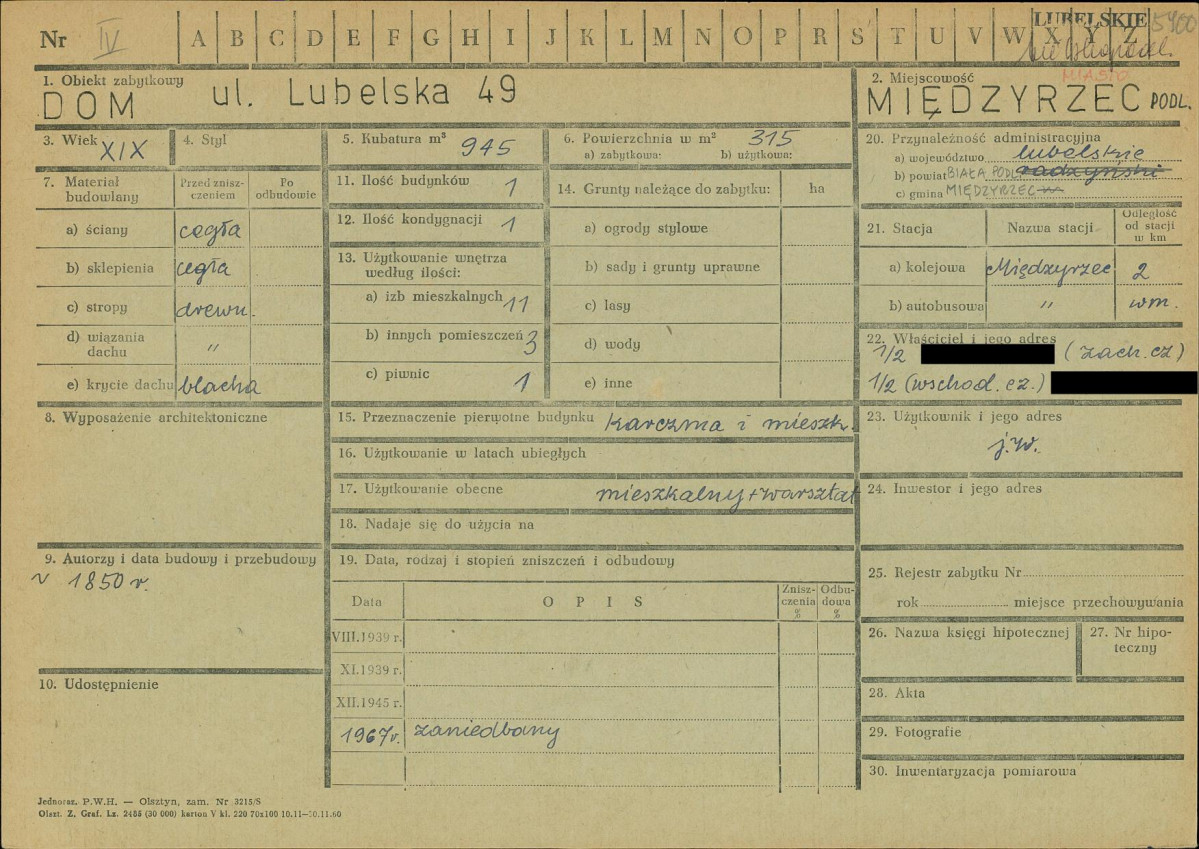 Nr IV A B C D E F G H I J K L M N O P R S T U V W X Y Z
LUBELSKIE
5900
MIASTO
1. Obiekt zabytkowy
DOM ul. Lubelska 49
2. Miejscowość
MIĘDZYRZEC PODL.
3. Wiek XIX
4. Styl
5. Kubatura m³ 945
6. Powierzchnia w m² 315
a) zabytkowa: b) użytkowa:
20. Przynależność administracyjna
a) województwo lubelskie
b) powiat BIAŁA PODL. radzyński
c) gmina MIĘDZYRZEC
7. Materiał budowlany
Przed zniszczeniem
Po odbudowie
a) ściany cegła
b) sklepienia cegła
c) stropy drewn.
d) wiązania dachu "
e) krycie dachu blacha
11. Ilość budynków 1
12. Ilość kondygnacji 1
13. Użytkowanie wnętrza według ilości:
a) izb mieszkalnych 11
b) innych pomieszczeń 3
c) piwnic 1
14. Grunty należące do zabytku: ha
a) ogrody stylowe
b) sady i grunty uprawne
c) lasy
d) wody
e) inne
21. Stacja
Nazwa stacji
Odległość od stacji w km
a) kolejowa Międzyrzec 2
b) autobusowa " wm.
22. Właściciel i jego adres
1/2 (zach. cz)
1/2 (wschod. cz.)
8. Wyposażenie architektoniczne
15. Przeznaczenie pierwotne budynku karczma i mieszk.
16. Użytkowanie w latach ubiegłych
17. Użytkowanie obecne mieszkalny + warsztat
18. Nadaje się do użycia na
23. Użytkownik i jego adres
j.w.
24. Inwestor i jego adres
9. Autorzy i data budowy i przebudowy
~ 1850 r.
19. Data, rodzaj i stopień zniszczeń i odbudowy
Data
O P I S
Zniszczenia %
Odbudowa %
VIII.1939 r.
XI.1939 r.
XII.1945 r.
1967 r. zaniedbany
10. Udostępnienie
25. Rejestr zabytku Nr
rok miejsce przechowywania
26. Nazwa księgi hipotecznej
27. Nr hipoteczny
28. Akta
29. Fotografie
30. Inwentaryzacja pomiarowa
Jednoraz. P.W.H. — Olsztyn, zam. Nr 3215/S
Olszt. Z. Graf. Lz. 2485 (30 000) karton V kl. 220 70x100 10.11—30.11.60